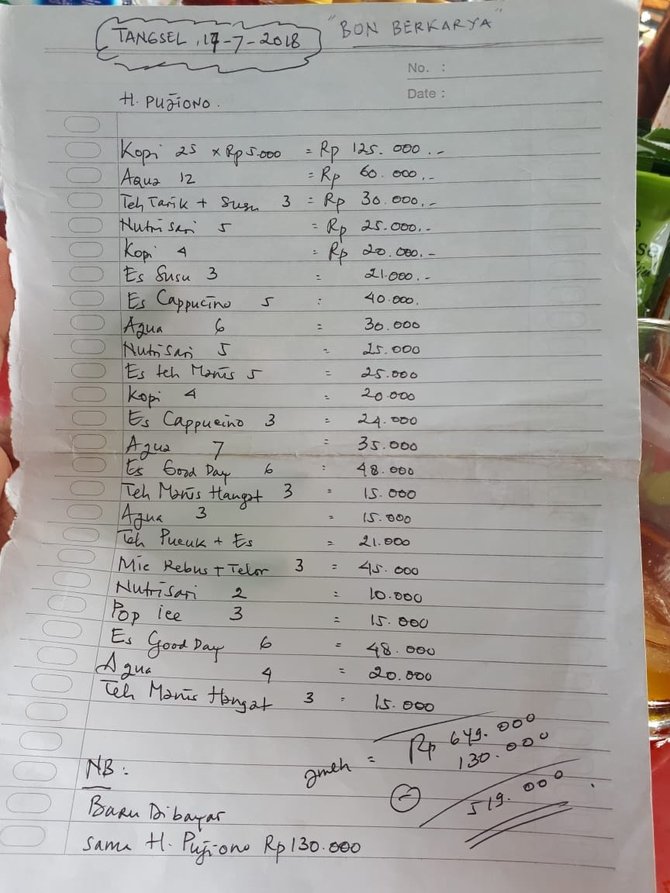 TANGSEL, 17-7-2018 "BON BERKARYA"
No. :
Date :
H. PUJIONO.
Kopi 25 x Rp 5.000 = Rp 125.000.-
Aqua 12 = Rp 60.000.-
Teh Tarik + Susu 3 = Rp 30.000.-
Nutrisari 5 = Rp 25.000.-
Kopi 4 = Rp 20.000.-
Es Susu 3 = 21.000.-
Es Cappucino 5 : 40.000.
Aqua 6 = 30.000
Nutrisari 5 = 25.000
Es teh Manis 5 = 25.000
Kopi 4 = 20.000
Es Cappucino 3 = 24.000
Aqua 7 = 35.000
Es Good Day 6 : 48.000
Teh Manis Hangat 3 = 15.000
Aqua 3 = 15.000
Teh Pucuk + Es = 21.000
Mie Rebus + Telor 3 = 45.000
Nutrisari 2 = 10.000
Pop ice 3 = 15.000
Es Good Day 6 = 48.000
Aqua 4 = 20.000
Teh Manis Hangat 3 = 15.000
Jmlh = Rp 649.000
130.000
- 519.000.
NB :
Baru Dibayar
sama H. Pujiono Rp 130.000